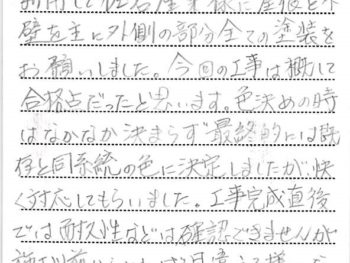 壁を主に外側の部分全ての塗装を
お願いしました。今回の工事は概して
合格点だったと思います。色決めの時
はなかなか決まらず最終的には既
存と同系統の色に決定しましたが、快
く対応してもらいました。工事完成直後
では耐久性などは確認できませんが